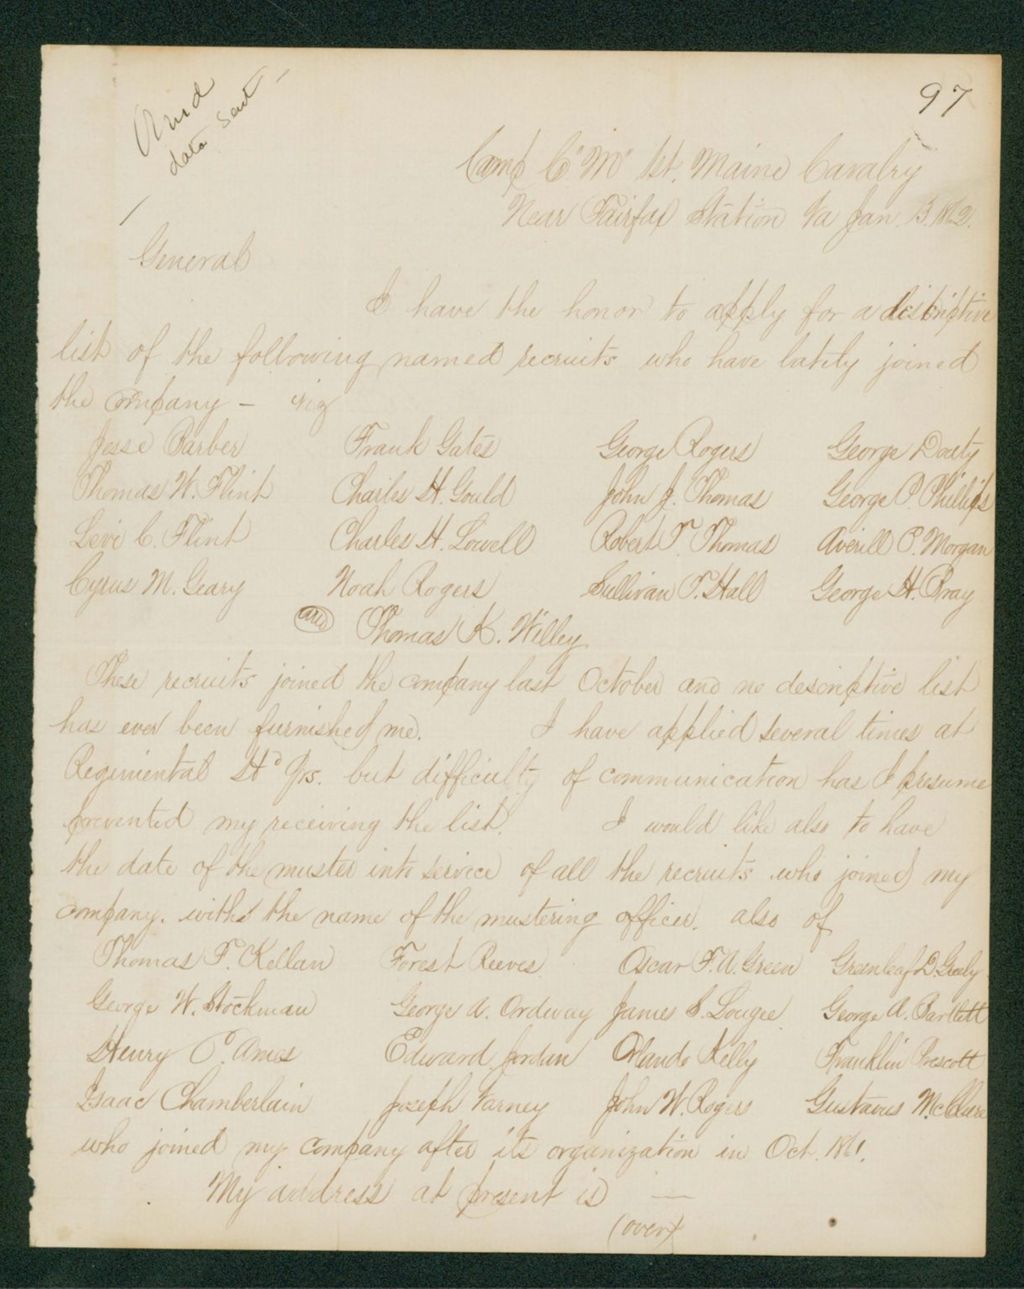 97
data sent
Camp Co "M" 1st. Maine Cavalry
Near Fairfax Station Va Jan. 13. 1862.
General
I have the honor to apply for a descriptive
list of the following named recruits who have lately joined
the company — viz
Jesse Barber Frank Gates George Rogers George Doaty
Thomas W. Flint Charles H. Gould John J. Thomas George P. Phillips
Levi C. Flint Charles H. Lowell Robert T. Thomas Averill P. Morgan
Cyrus M. Geary Noah Rogers Sullivan T. Hall George H. Pray
and Thomas K. Willey
These recruits joined the company last October and no descriptive list
has ever been furnished me. I have applied several times at
Regimental Hd Qrs. but difficulty of communication has I presume
prevented my receiving the list. I would like also to have
the date of the muster into service of all the recruits who joined my
company. with the name of the mustering officer. also of
Thomas F. Kellan Forest Reeves Oscar F. A. Green Greenleaf D. Greely
George W. Stockman George A. Ordway James S. Lougee George A. Bartlett
Henry P. Ames Edward Jordan Orlando Kelly Franklin Prescott
Isaac Chamberlain Joseph Varney John W. Rogers Gustavus McClure
who joined my company after its organization in Oct. 1861.
My address at present is —
(over)